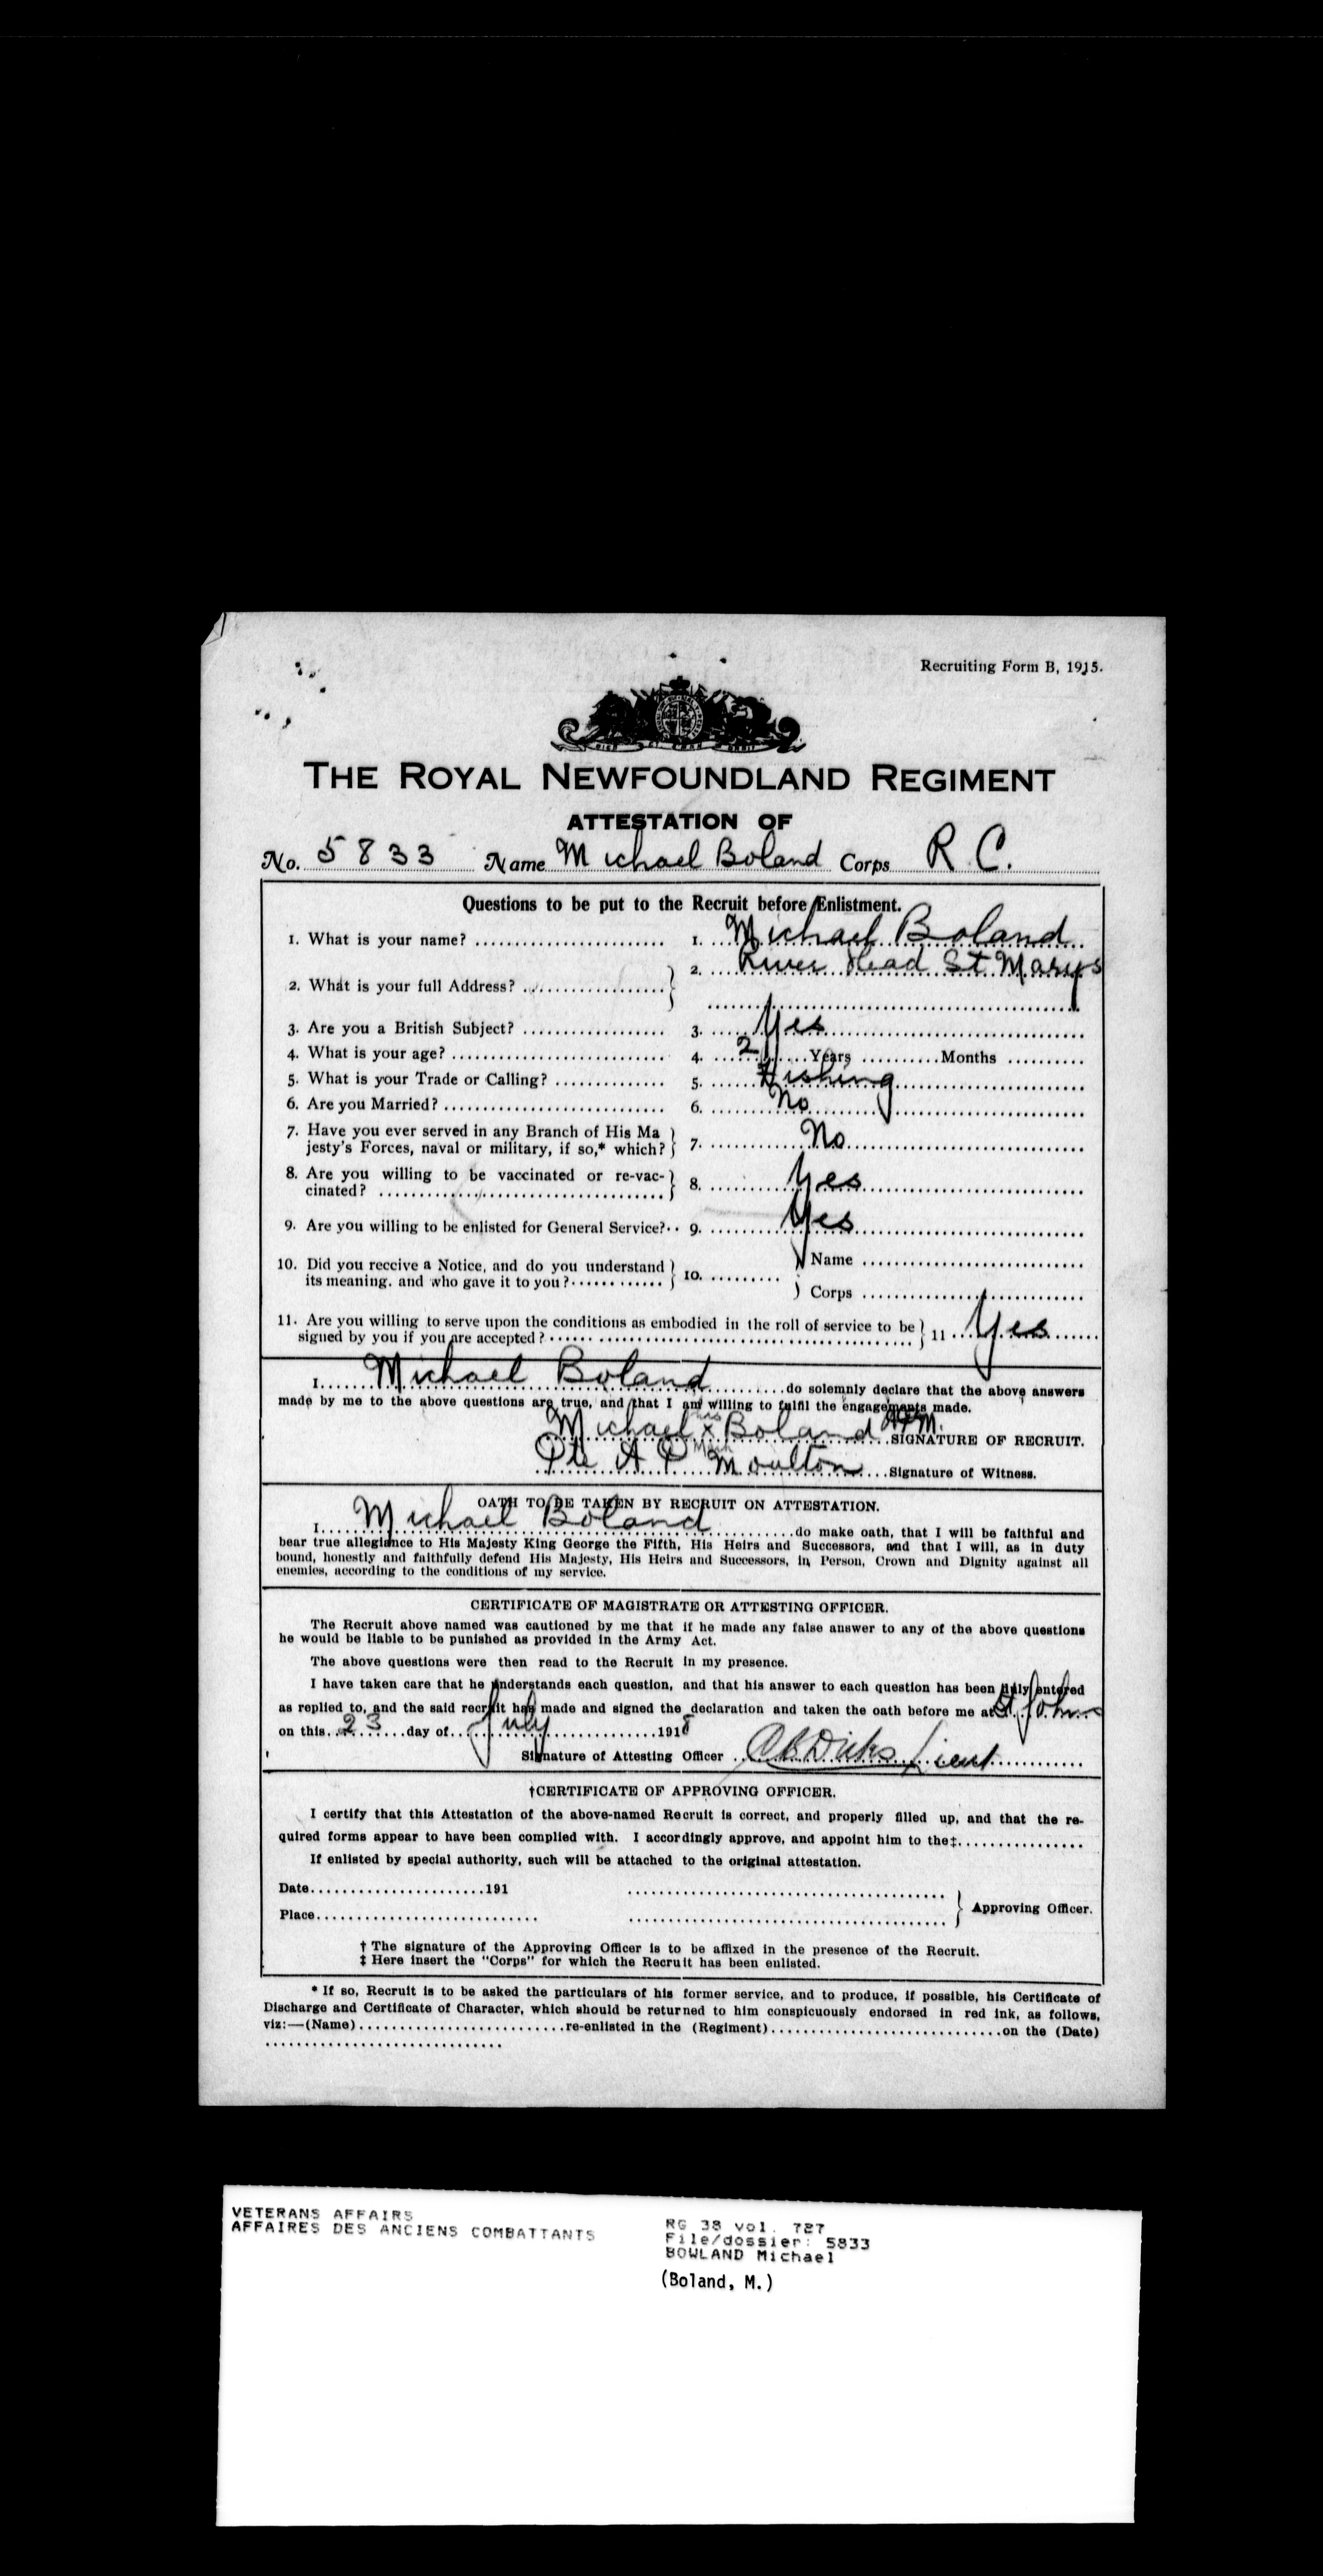 Recruiting Form B, 1915.
THE ROYAL NEWFOUNDLAND REGIMENT
ATTESTATION OF
No. 5833 Name Michael Boland Corps R C.
Questions to be put to the Recruit before Enlistment.
1. What is your name? 1. Michael Boland
2. What is your full Address? 2. River Head St Marys
3. Are you a British Subject? 3. Yes
4. What is your age? 4. Years Months
5. What is your Trade or Calling? 5. Fishing
6. Are you Married? 6. No
7. Have you ever served in any Branch of His Ma
jesty's Forces, naval or military, if so,* which? 7. No
8. Are you willing to be vaccinated or re-vac-
cinated? 8. Yes
9. Are you willing to be enlisted for General Service? 9. Yes
10. Did you receive a Notice, and do you understand
its meaning. and who gave it to you? 10. Name
Corps
11. Are you willing to serve upon the conditions as embodied in the roll of service to be
signed by you if you are accepted? 11 Yes
I Michael Boland do solemnly declare that the above answers
made by me to the above questions are true, and that I am willing to fulfil the engagements made.
Michael his x Boland SIGNATURE OF RECRUIT.
Mark
Pte A P Moulton Signature of Witness.
OATH TO BE TAKEN BY RECRUIT ON ATTESTATION.
I Michael Boland do make oath, that I will be faithful and
bear true allegiance to His Majesty King George the Fifth, His Heirs and Successors, and that I will, as in duty
bound, honestly and faithfully defend His Majesty, His Heirs and Successors, in Person, Crown and Dignity against all
enemies, according to the conditions of my service.
CERTIFICATE OF MAGISTRATE OR ATTESTING OFFICER.
The Recruit above named was cautioned by me that if he made any false answer to any of the above questions
he would be liable to be punished as provided in the Army Act.
The above questions were then read to the Recruit in my presence.
I have taken care that he understands each question, and that his answer to each question has been duly entered
as replied to, and the said recruit has made and signed the declaration and taken the oath before me at St Johns
on this 23 day of July 1918
Signature of Attesting Officer C B Dicks Lieut
†CERTIFICATE OF APPROVING OFFICER.
I certify that this Attestation of the above-named Recruit is correct, and properly filled up, and that the re-
quired forms appear to have been complied with. I accordingly approve, and appoint him to the‡
If enlisted by special authority, such will be attached to the original attestation.
Date 191
Place Approving Officer.
† The signature of the Approving Officer is to be affixed in the presence of the Recruit.
‡ Here insert the "Corps" for which the Recruit has been enlisted.
* If so, Recruit is to be asked the particulars of his former service, and to produce, if possible, his Certificate of
Discharge and Certificate of Character, which should be returned to him conspicuously endorsed in red ink, as follows,
viz:—(Name) re-enlisted in the (Regiment) on the (Date)
VETERANS AFFAIRS
AFFAIRES DES ANCIENS COMBATTANTS
RG 38 vol. 727
File/dossier: 5833
BOWLAND Michael
(Boland, M.)